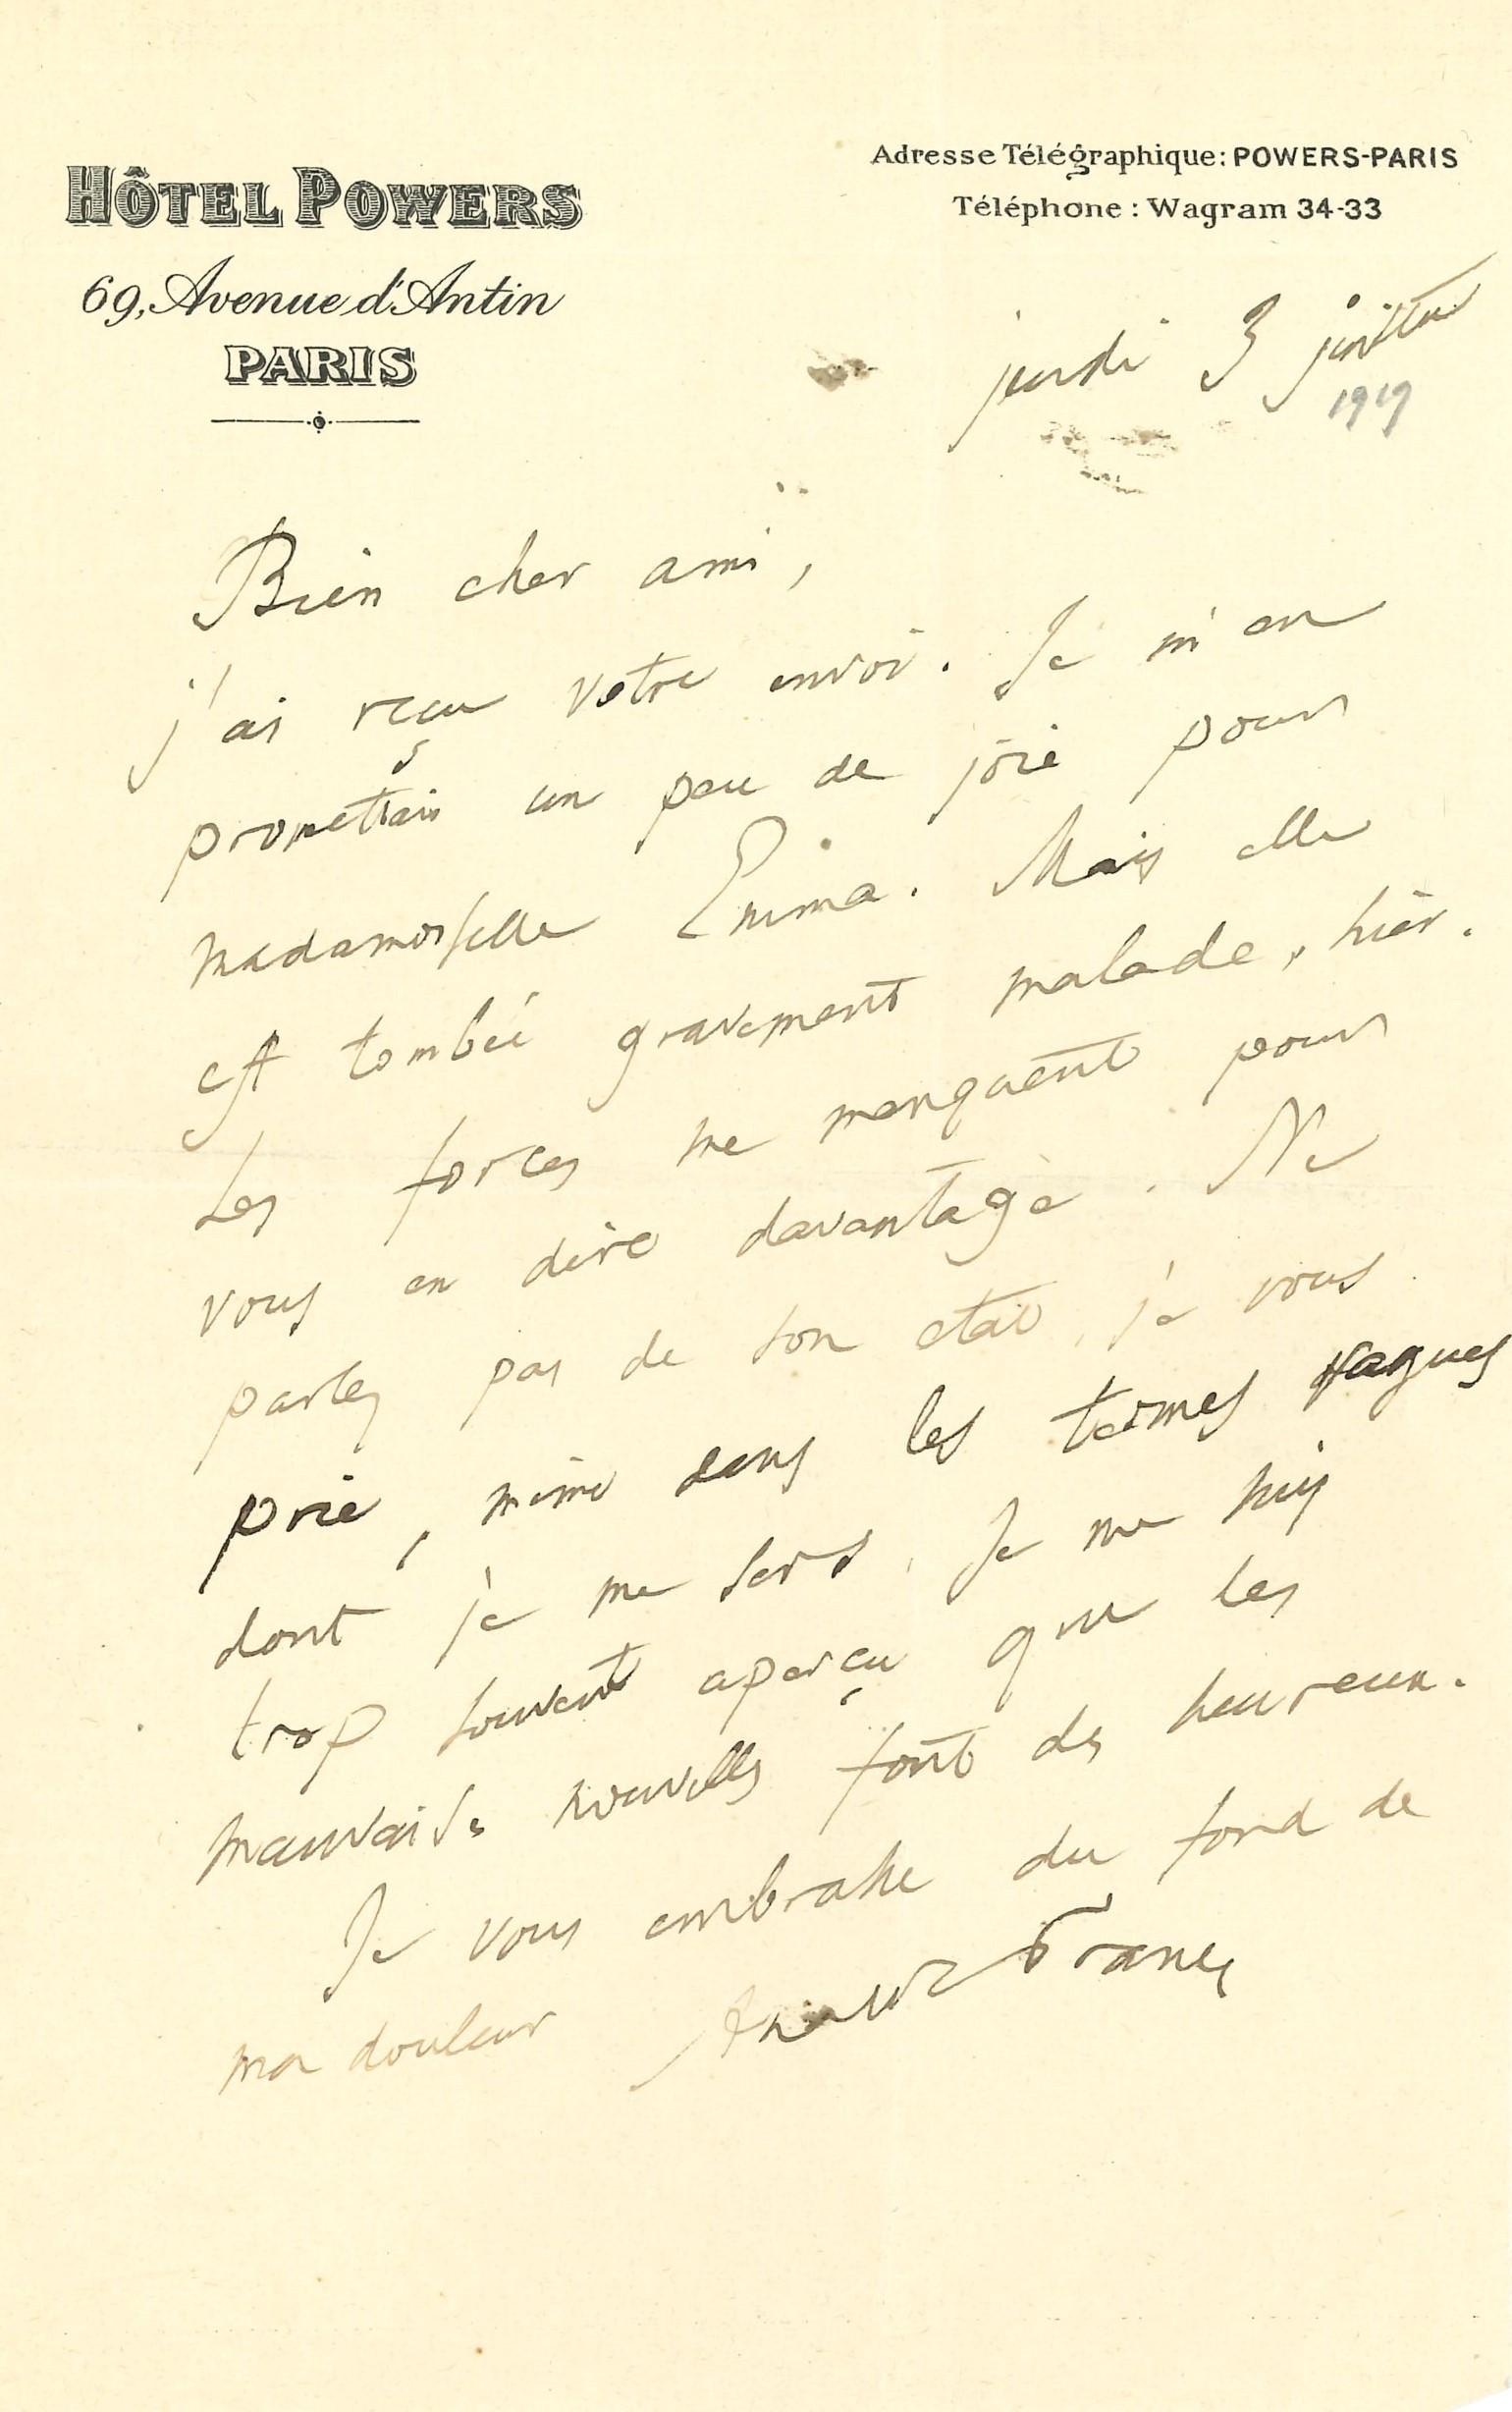 HÔTEL POWERS
69, Avenue d'Antin
PARIS
Adresse Télégraphique: POWERS-PARIS
Téléphone : Wagram 34-33
jeudi 3 juillet
1919
Bien cher ami,
j'ai reçu votre envoi. Je m'en
promettais un peu de joie pour
mademoiselle Emma. Mais elle
est tombée gravement malade, hier.
Les forces me manquent pour
vous en dire davantage. Ne
parlez pas de son état, je vous
prie, même dans les termes vagues
dont je me sers. Je me suis
trop souvent aperçu que les
mauvaises nouvelles font des heureux.
Je vous embrasse du fond de
ma douleur
Anatole France